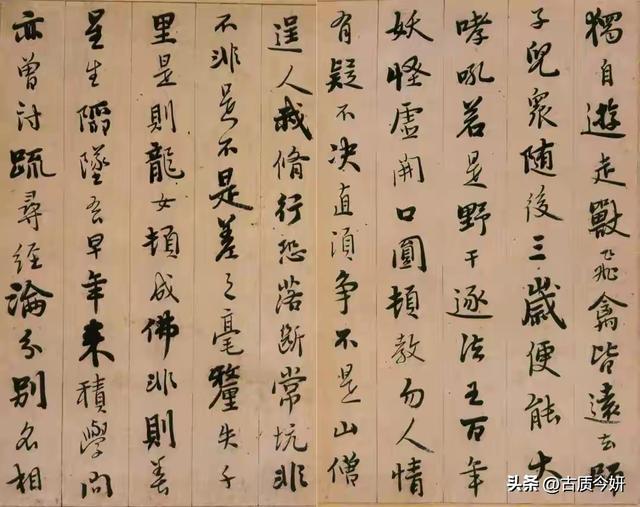 獨自遊走獸飛禽皆遠去師
子兒衆随後三歲便能大
哮吼若是野干逐法王百年
妖怪虛開口圓頓教勿人情
有疑不决直須争不是山僧
逞人我脩行恐落斷常坑非
不非是不是差之毫釐失千
里是則龍女頓成佛非則善
星生陷墜吾早年来積學問
亦曾討疏尋經論分别名相
头条 @古质今妍